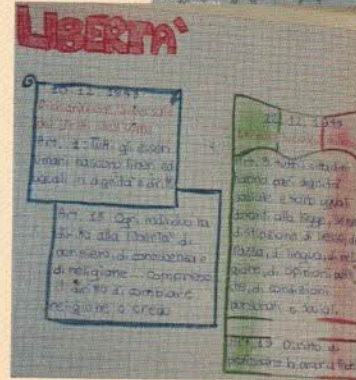 LIBERTA'
10.12.1948
Dichiarazione universale
dei diritti dell'uomo
Art. 1: Tutti gli esseri
umani nascono liberi ed
uguali in dignità e diritti
Art. 18 Ogni individuo ha
diritto alla libertà di
pensiero, di coscienza e
di religione... compreso
il diritto di cambiare
religione o credo
Art. 3 Tutti i cittadini
hanno pari dignità
sociale e sono uguali
davanti alla legge, senza
distinzione di sesso, di
razza, di lingua, di reli
gione, di opinioni poli
che, di condizioni
personali e sociali.
Art. 19 Diritto di
professare la propria fede